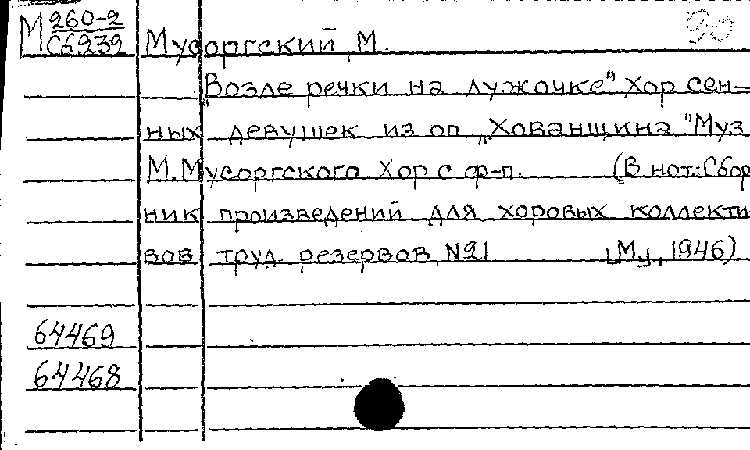 М 260-2
С6939
90
Мусоргский, М.
Возле речки на лужочке" Хор сен=
ных девушек из оп „Хованщина" Муз
М. Мусоргского Хор с ф-п. (В нот: Сбор
ник произведений для хоровых коллекти
вов труд резервов №21 [Му, 1946)
64469
64468